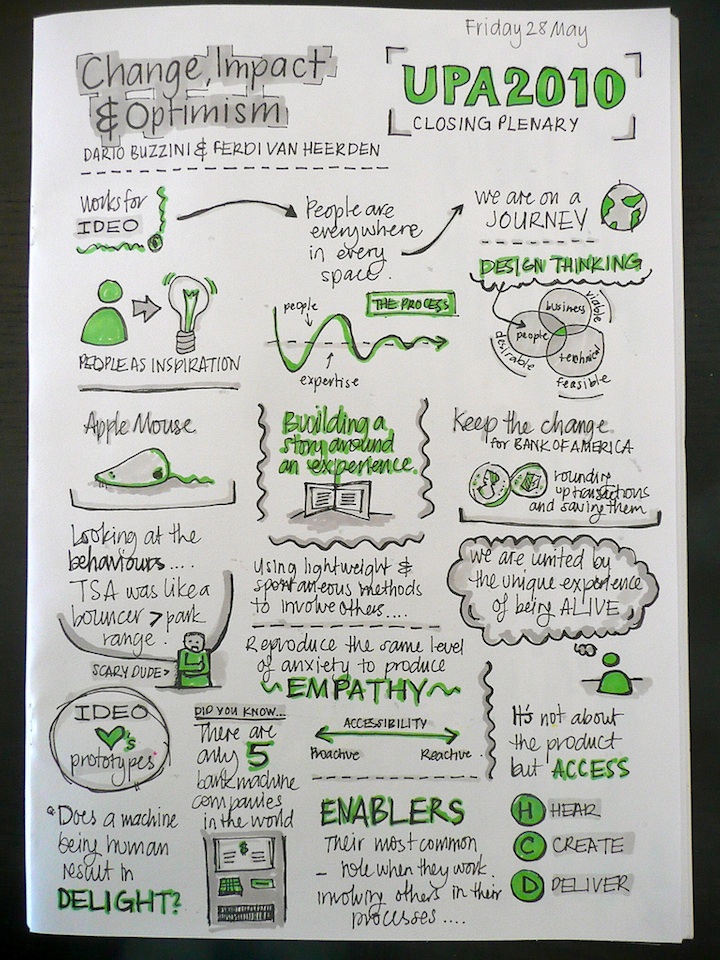 Friday 28 May
Change, Impact
& Optimism
UPA2010
CLOSING PLENARY
DARIO BUZZINI & FERDI VAN HEERDEN
works for
IDEO
People are
everywhere
in every
space.
we are on a
JOURNEY
DESIGN THINKING
PEOPLE AS INSPIRATION
people
THE PROCESS
expertise
business
viable
people
desirable
technical
feasible
Apple Mouse
Building a
story around
an experience.
Keep the change
for BANK OF AMERICA
rounding
up transactions
and saving them
Looking at the
behaviours....
TSA was like a
bouncer > park
range.
SCARY DUDE>
Using lightweight &
spontaneous methods
to involve others....
we are united by
the unique experience
of being ALIVE
Reproduce the same level
of anxiety to produce
~EMPATHY~
IDEO
's
prototypes
DID YOU KNOW...
There are
only 5
bank machine
companies
in the world
$
ACCESSIBILITY
Proactive
Reactive
It's not about
the product
but ACCESS
Does a machine
being human
result in
DELIGHT?
ENABLERS
Their most common
- role when they work.
involving others in their
processes....
H HEAR
C CREATE
D DELIVER